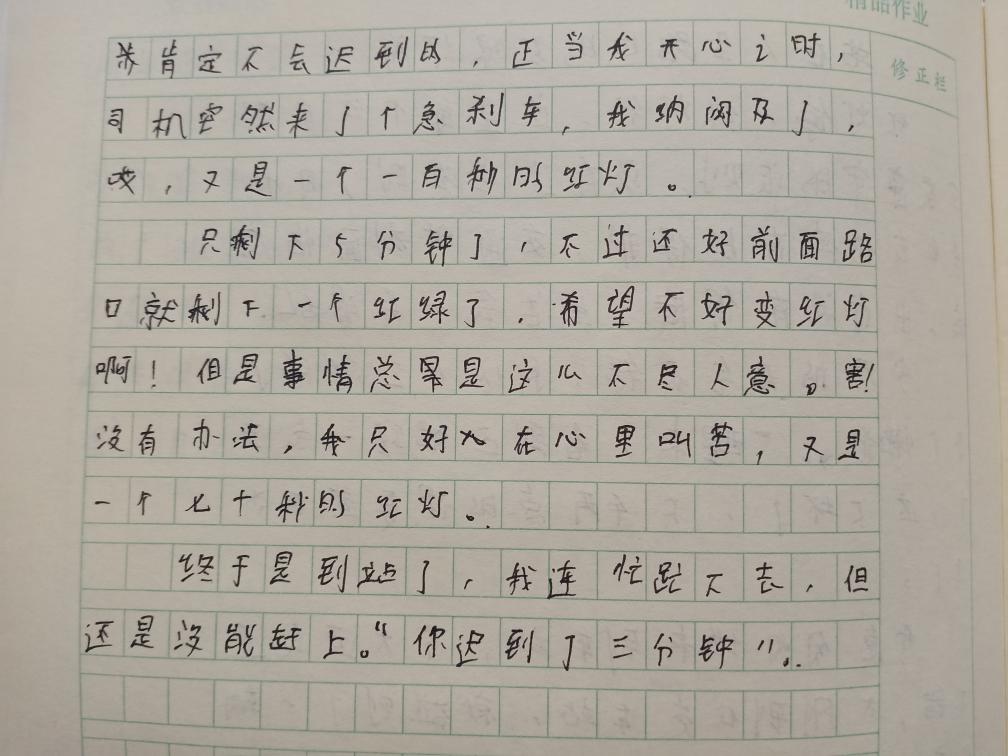 精品作业
修正栏
肯定不会迟到的，正当我开心之时，
司机突然来了个急刹车，我纳闷及了，
哎，又是一个一百秒的红灯。
只剩下5分钟了，不过还好前面路
口就剩下一个红绿了，希望不好变红灯
啊！但是事情总是这么不尽人意。害！
没有办法，我只好又在心里叫苦，又是
一个七十秒的红灯。
终于是到站了，我连忙跑下去，但
还是没能赶上。“你迟到了三分钟”。